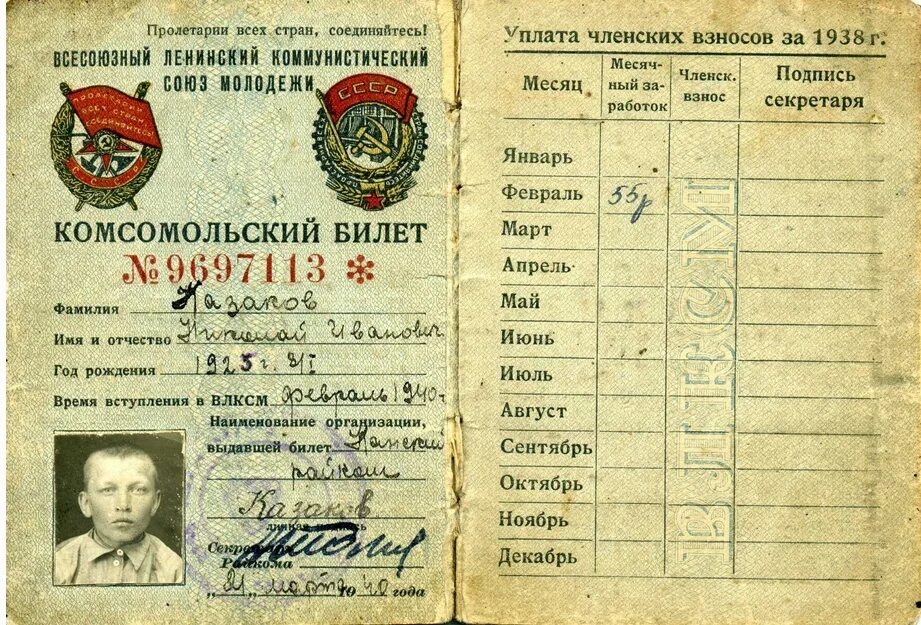 Пролетарии всех стран, соединяйтесь!
ВСЕСОЮЗНЫЙ ЛЕНИНСКИЙ КОММУНИСТИЧЕСКИЙ
СОЮЗ МОЛОДЕЖИ
ПРОЛЕТАРИИ
ВСЕХ СТРАН
СОЕДИНЯЙТЕСЬ!
СССР
СССР
КОМСОМОЛЬСКИЙ БИЛЕТ
№9697113
Фамилия Казаков
Имя и отчество Николай Иванович
Год рождения 1925 г. VI
Время вступления в ВЛКСМ февраль 1940 г
Наименование организации,
выдавшей билет Канский
райком
Казаков
личная подпись
Секретарь
Райкома
„21" марта 1940 года
Уплата членских взносов за 1938 г.
Месяц Месяч-ный за-работок Членск. взнос Подпись секретаря
Январь
Февраль 55р
Март
Апрель
Май
Июнь
Июль
Август
Сентябрь
Октябрь
Ноябрь
Декабрь
ВЛКСМ